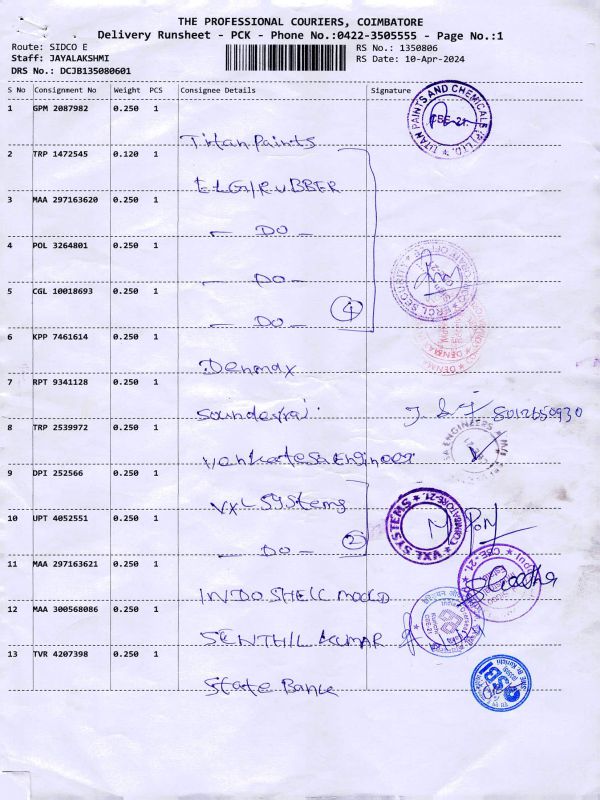 THE PROFESSIONAL COURIERS, COIMBATORE
Delivery Runsheet - PCK - Phone No.:0422-3505555 - Page No.:1
Route: SIDCO E
Staff: JAYALAKSHMI
DRS No.: DCJB135080601
RS No.: 1350806
RS Date: 10-Apr-2024
S No Consignment No Weight PCS Consignee Details Signature
1 GPM 2087982 0.250 1
Titan Paints
TITAN PAINTS AND CHEMICALS (P) LTD.
CBE-21.
2 TRP 1472545 0.120 1
ELGI RUBBER
3 MAA 297163620 0.250 1
- DO -
4 POL 3264801 0.250 1
- DO -
SECURITY
5 CGL 10018693 0.250 1
- DO - 4
6 KPP 7461614 0.250 1
Denmax
7 RPT 9341128 0.250 1
Soundevraj 8012650930
8 TRP 2539972 0.250 1
Venkatesa Engineer
ENGINEERS
9 DPI 252566 0.250 1
VXL Systems
VXL SYSTEMS
10 UPT 4052551 0.250 1
- DO - 2
11 MAA 297163621 0.250 1
INDO SHELL MOULD
CBE - 21.
12 MAA 300568086 0.250 1
SENTHIL KUMAR
13 TVR 4207398 0.250 1
State Bank